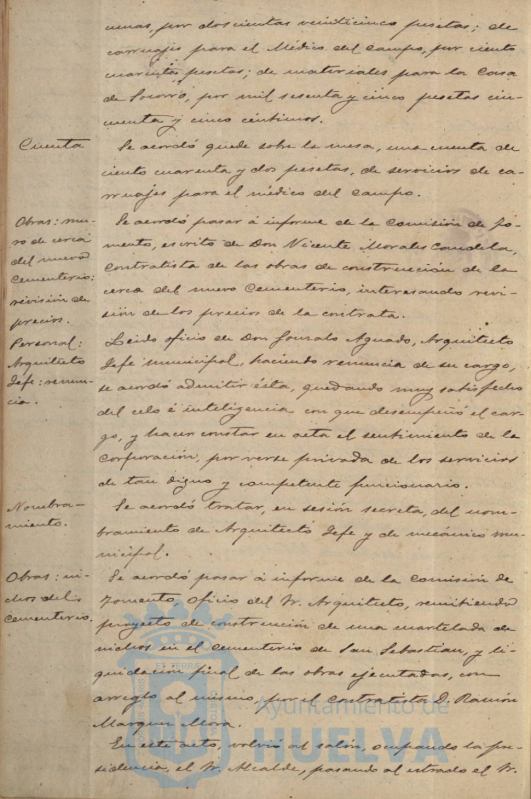 cinas, por doscientas veinticinco pesetas; de
carruajes para el Médico del Campo, por ciento
cuarenta pesetas; de materiales para la Casa
de Socorro, por mil sesenta y cinco pesetas cin-
cuenta y cinco céntimos.
Cuenta
Se acordó quede sobre la mesa, una cuenta de
ciento cuarenta y dos pesetas, de servicios de ca-
rruajes para el médico del campo.
Obras: mu-
ro de cerca
del nuevo
Cementerio:
revisión de
precios.
Se acordó pasar á informe de la Comisión de Fo-
mento, escrito de Don Vicente Morales Candela,
contratista de las obras de construcción de la
cerca del nuevo Cementerio, interesando revi-
sión de los precios de la contrata.
Personal:
Arquitecto
Jefe: renun-
cia.
Leido oficio de Don Gonzalo Aguado, Arquitecto
Jefe municipal, haciendo renuncia de su cargo,
se acordó admitir ésta, quedando muy satisfecho
del celo é inteligencia con que desempeñó el car-
go, y hacer constar en acta el sentimiento de la
Corporación, por verse privada de los servicios
de tan digno y competente funcionario.
Nombra-
miento.
Se acordó tratar, en sesión secreta, del nom-
bramiento de Arquitecto Jefe y de mecánico mu-
nicipal.
Obras: ni-
chos del
Cementerio.
Se acordó pasar á informe de la Comisión de
Fomento oficio del Sr. Arquitecto, remitiendo
proyecto de construcción de una cuartelada de
nichos en el Cementerio de San Sebastian, y li-
quidación final de las obras ejecutadas, con
arreglo al mismo, por el contratista D. Ramón
Marquez Mora.
En este acto, volvió al salón, ocupando la pre-
sidencia, el Sr. Alcalde, pasando al estrado el Sr.
Ayuntamiento de
HUELVA